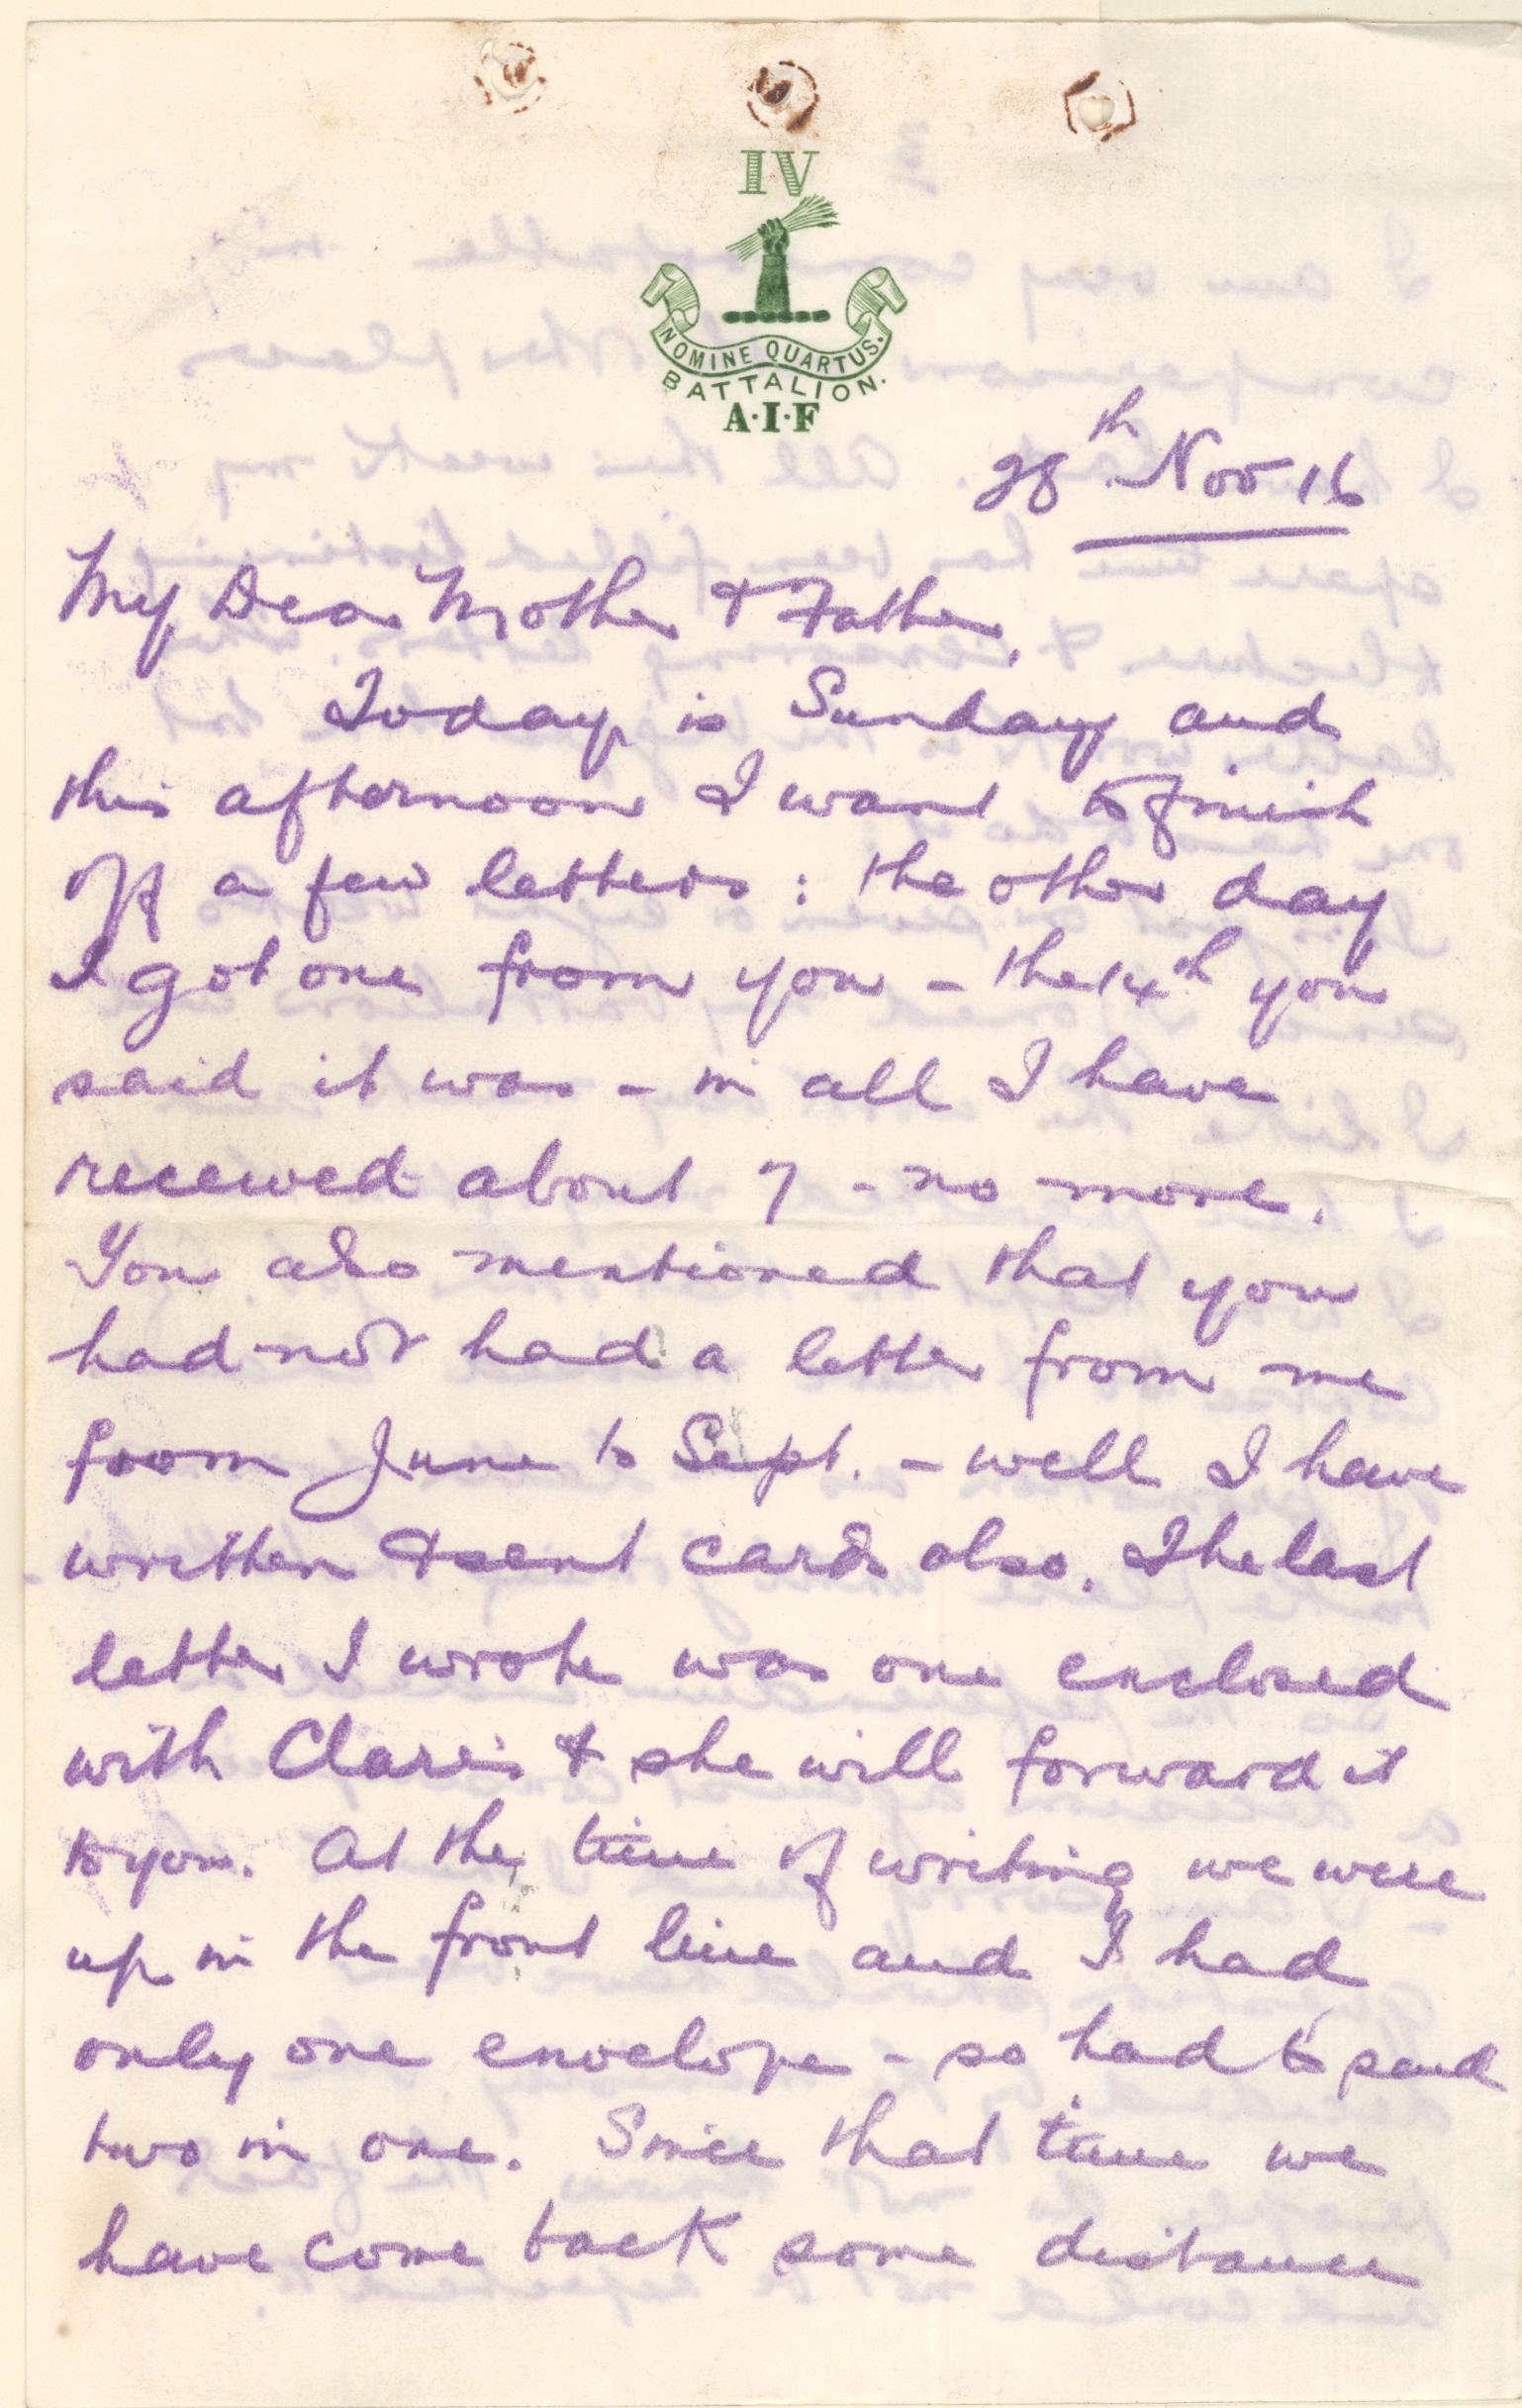 IV
NOMINE QUARTUS.
BATTALION.
A.I.F
28th Nov 16
My Dear Mother & Father,
Today is Sunday and
this afternoon I want to finish
off a few letters: the other day
I got one from you - the 14th you
said it was - in all I have
received about 7 - no more.
You also mentioned that you
had not had a letter from me
from June to Sept. - well I have
written & sent cards also. The last
letter I wrote was one enclosed
with Claris & she will forward it
to you. At the time of writing we were
up in the front line and I had
only one envelope - so had to send
two in one. Since that time we
have come back some distance